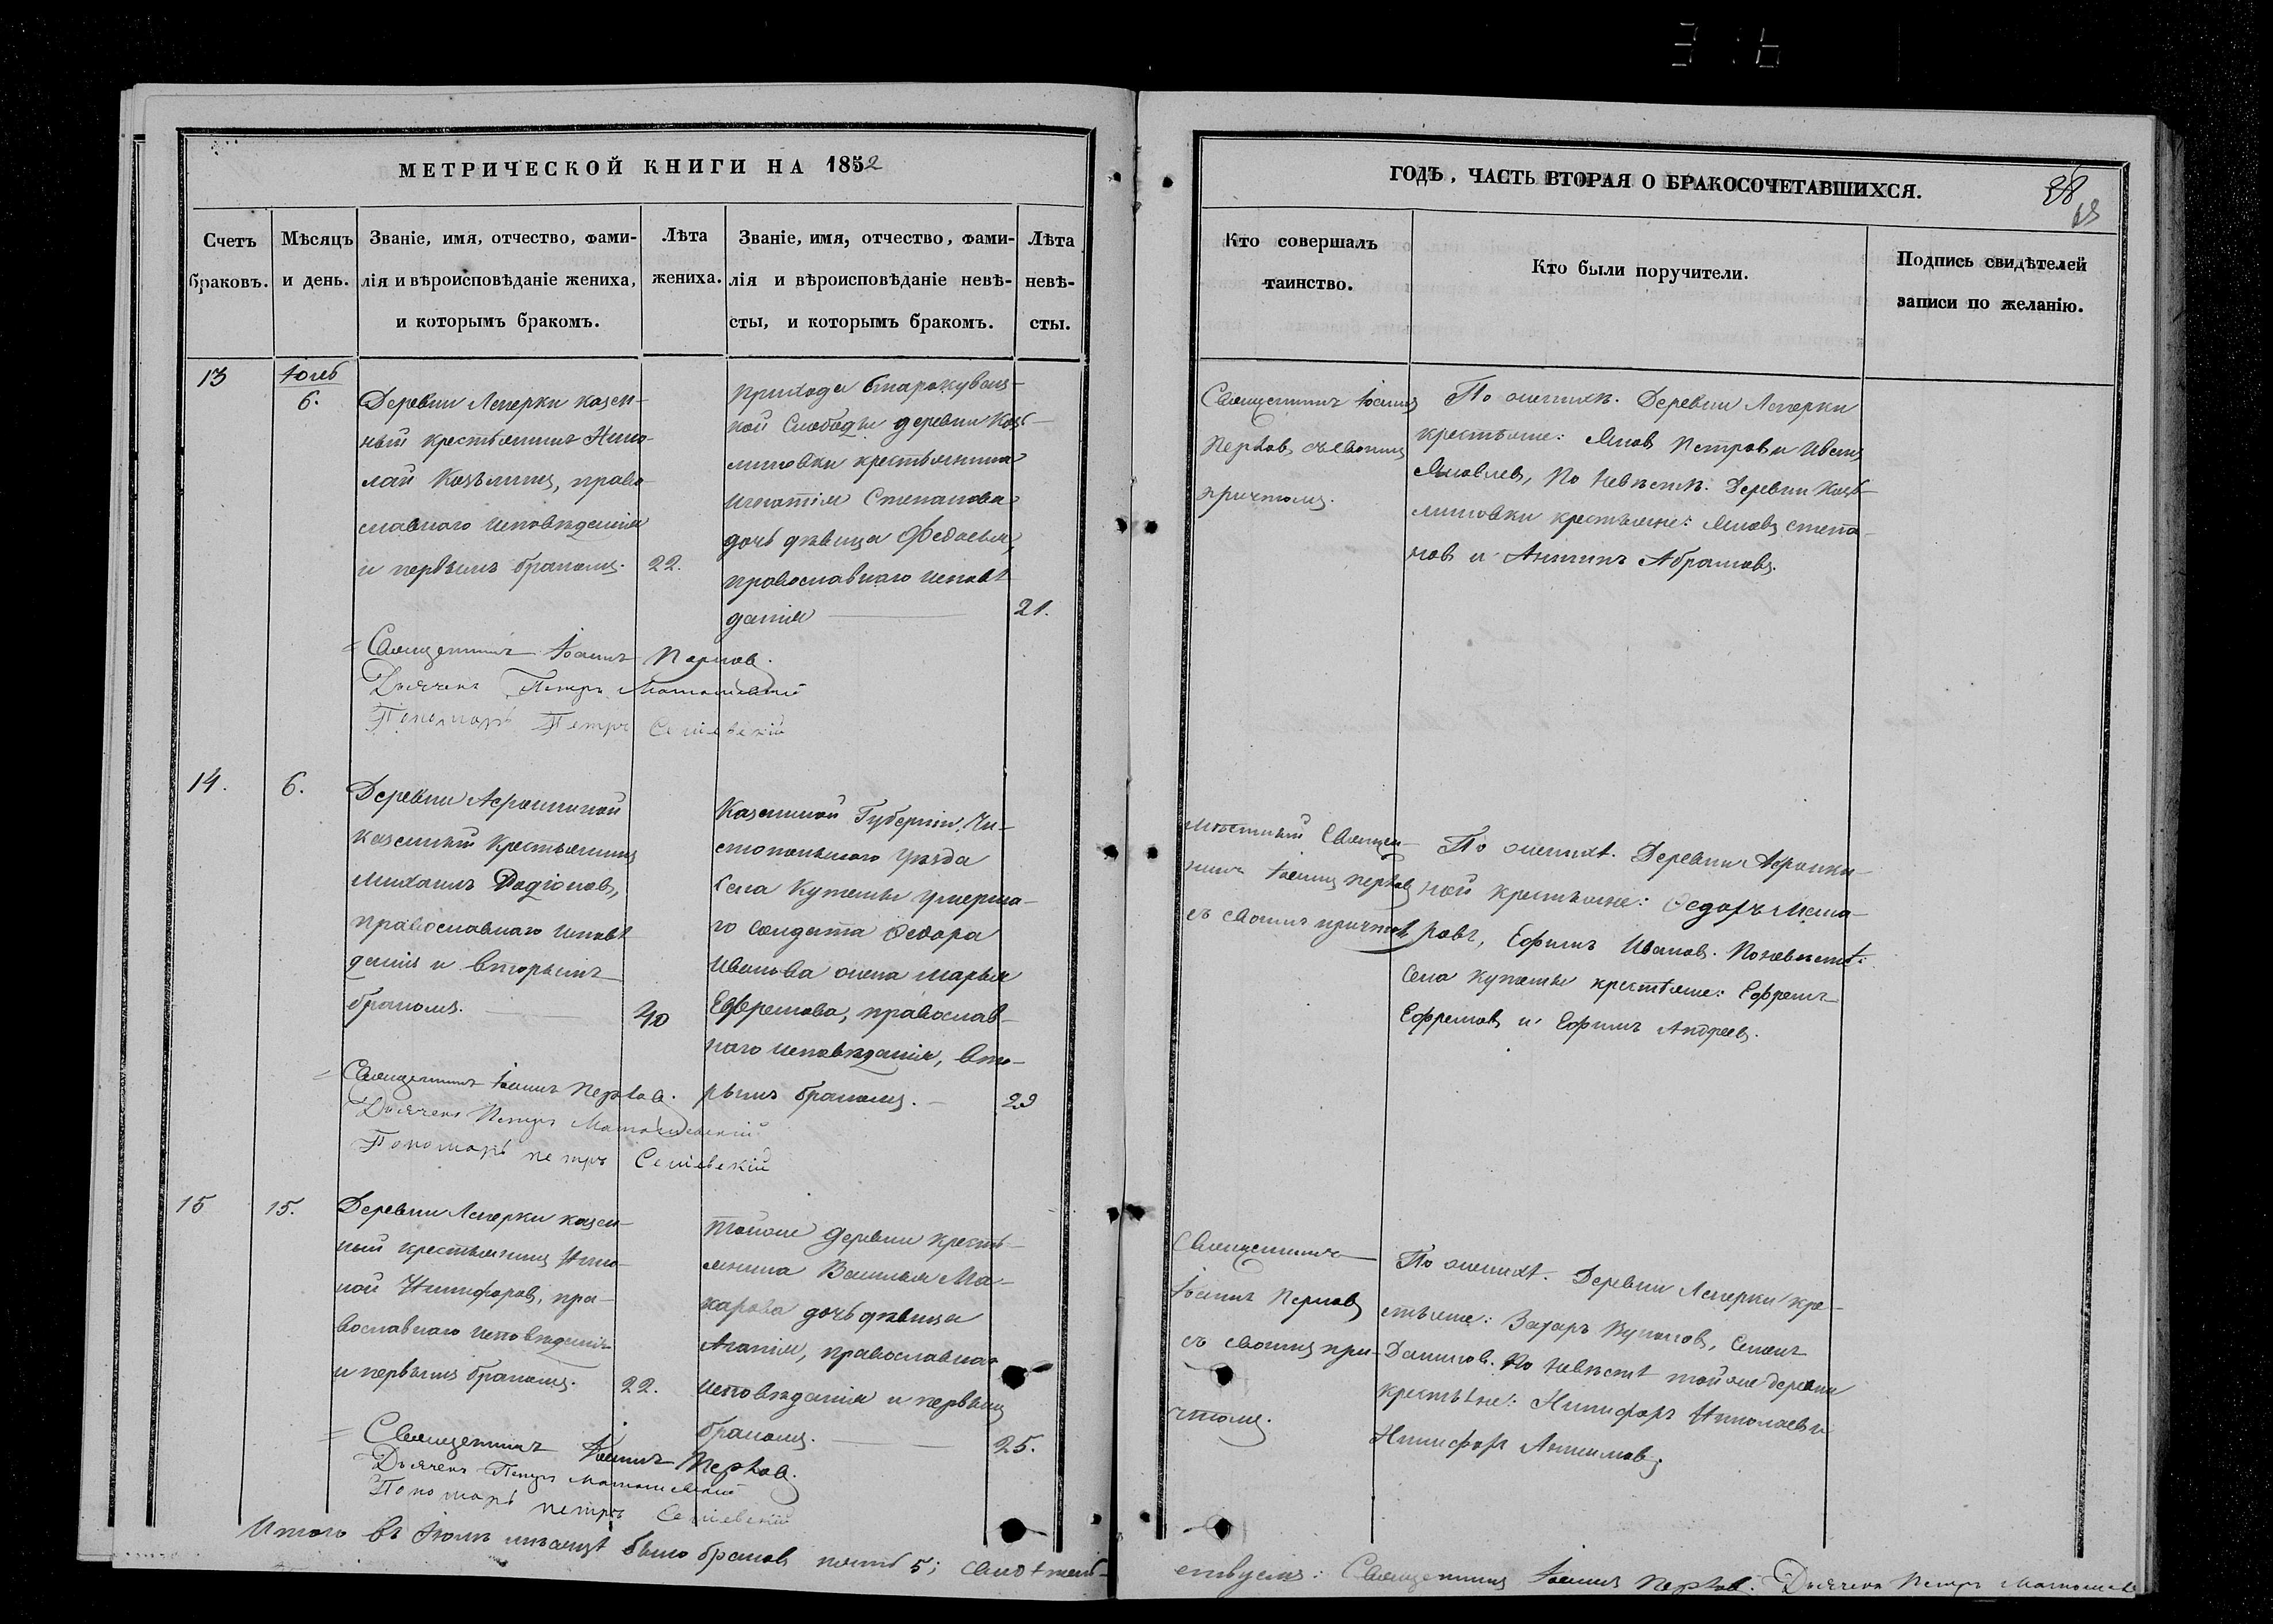 МЕТРИЧЕСКОЙ КНИГИ НА 1852
Счетъ браковъ.
Мѣсяцъ и день.
Званіе, имя, отчество, фами-
лія и вѣроисповѣданіе жениха,
и которымъ бракомъ.
Лѣта
жениха.
Званіе, имя, отчество, фами-
лія и вѣроисповѣданіе невѣ-
сты, и которымъ бракомъ.
Лѣта
невѣ-
сты.
13
6.
Деревни Леперки казен-
ный крестьянинъ Нико-
лай Козьминъ, право-
славнаго исповѣданія
и первымъ бракомъ.
22.
прихода Старокувац-
кой Слободы деревни Кузь-
миновки крестьянина
Игнатія Степанова
дочь дѣвица Федосья,
православнаго исповѣ
данія
21.
Священникъ Іоаннъ Перков
Дьячекъ Петръ
Пономарь Петръ
14.
6.
Деревни
казенный крестьянинъ
Михаилъ Родіоновъ,
православнаго исповѣ
данія и вторымъ
бракомъ.
40
Казанской Губерніи, Чи-
стопольскаго уѣзда
села Кутемы умерша-
го солдата Федора
Иванова жена Марья
Ефремова, православ-
наго исповѣданія, вто-
рымъ бракомъ.
29
Священникъ Іоаннъ Перков.
Дьячекъ Петръ
Пономарь Петръ
15
15.
Деревни Леперки казен-
ный крестьянинъ Нико-
лай Никифоров, пра-
вославнаго исповѣданія
и первымъ бракомъ.
22.
Тойже деревни кресть-
янина Василья Ма-
карова дочь дѣвица
Агапія, православнаго
исповѣданія и первымъ
бракомъ.
25.
Священникъ Іоаннъ Перков.
Дьячекъ Петръ
Пономарь Петръ
Итого въ Іюлѣ мѣсяцѣ было браков 5; свидѣтель-
ГОДЪ, ЧАСТЬ ВТОРАЯ О БРАКОСОЧЕТАВШИХСЯ.
Кто совершалъ
таинство.
Кто были поручители.
Подпись свидѣтелей
записи по желанію.
Священникъ Іоаннъ
Перков съ своимъ
причтомъ.
По женихѣ. Деревни Леперки
крестьяне: Яков Петров и Иванъ
Яковлев, по невѣстѣ. Деревни Кузь-
миновки крестьяне: Яковъ Степа-
нов и Антипъ Абрамовъ.
Мѣстный Священ-
никъ Іоаннъ Перков
съ своимъ причтом
По женихѣ. Деревни
ной крестьяне: Федоръ Мака-
ровъ, Ефимъ Иванов. По невѣстѣ:
Села Кутемы крестьяне: Ефремъ
Ефремов и Ефимъ Андреев.
Священникъ
Іоаннъ Перков
съ своимъ при-
чтомъ.
По женихѣ. Деревни Леперки кре-
стьяне: Захаръ, Семенъ
Данилов. По невѣстѣ тойже деревни
крестьяне: Никифоръ Николаев и
Никифоръ Анисимов.
ствуемъ: Священникъ Іоаннъ Перков. Дьячекъ Петръ